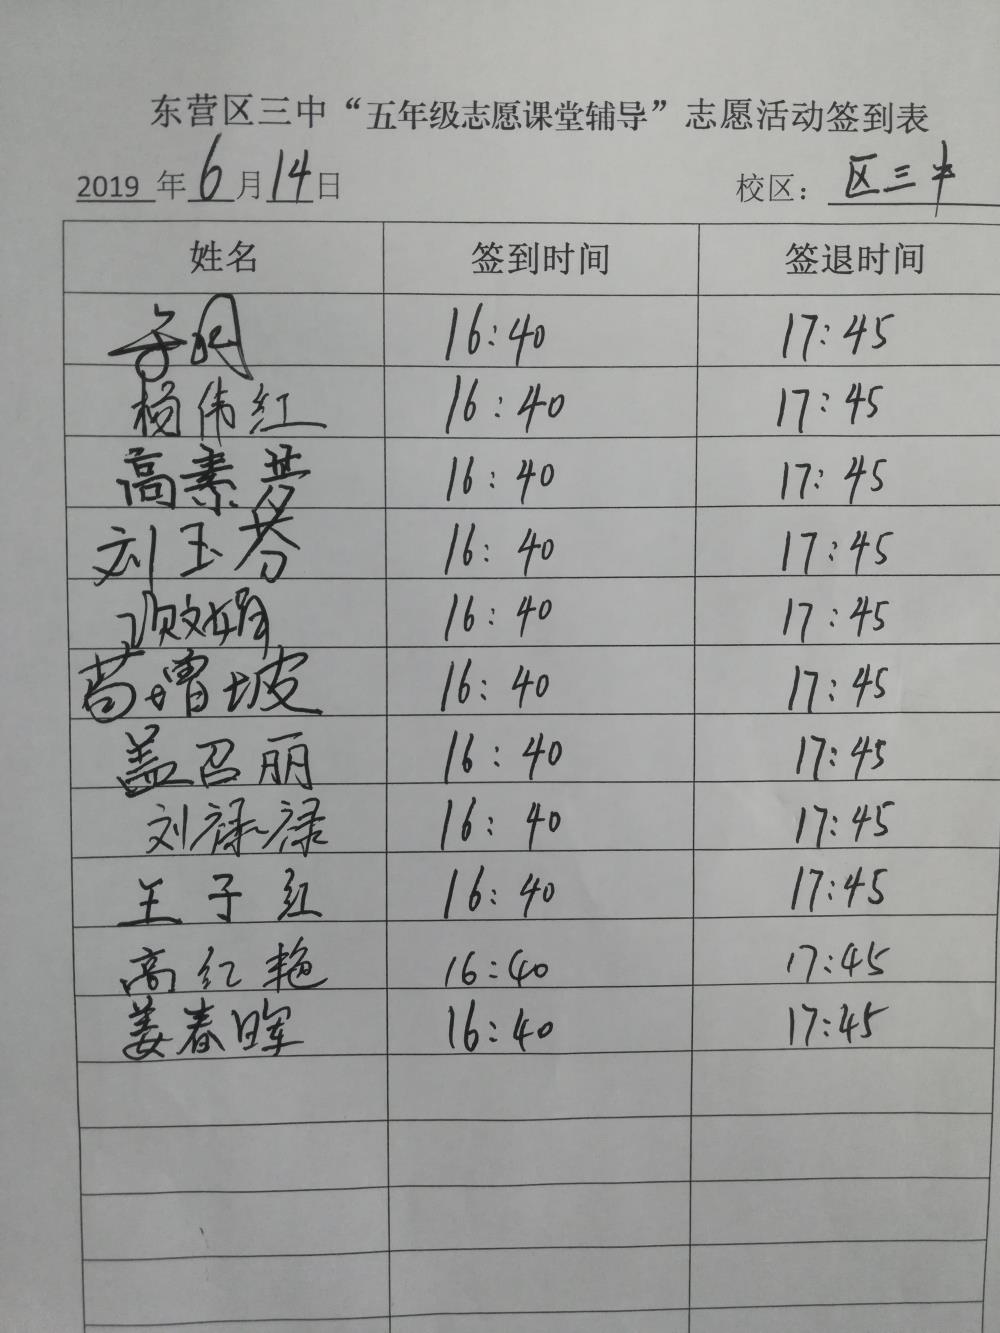 东营区三中“五年级志愿课堂辅导”志愿活动签到表
2019 年 6 月 14 日 校区： 区三中
姓名 签到时间 签退时间
16:40 17:45
杨伟红 16:40 17:45
高素芬 16:40 17:45
刘玉芬 16:40 17:45
16:40 17:45
苟增坡 16:40 17:45
盖召丽 16:40 17:45
刘禄禄 16:40 17:45
王子红 16:40 17:45
高红艳 16:40 17:45
姜春晖 16:40 17:45